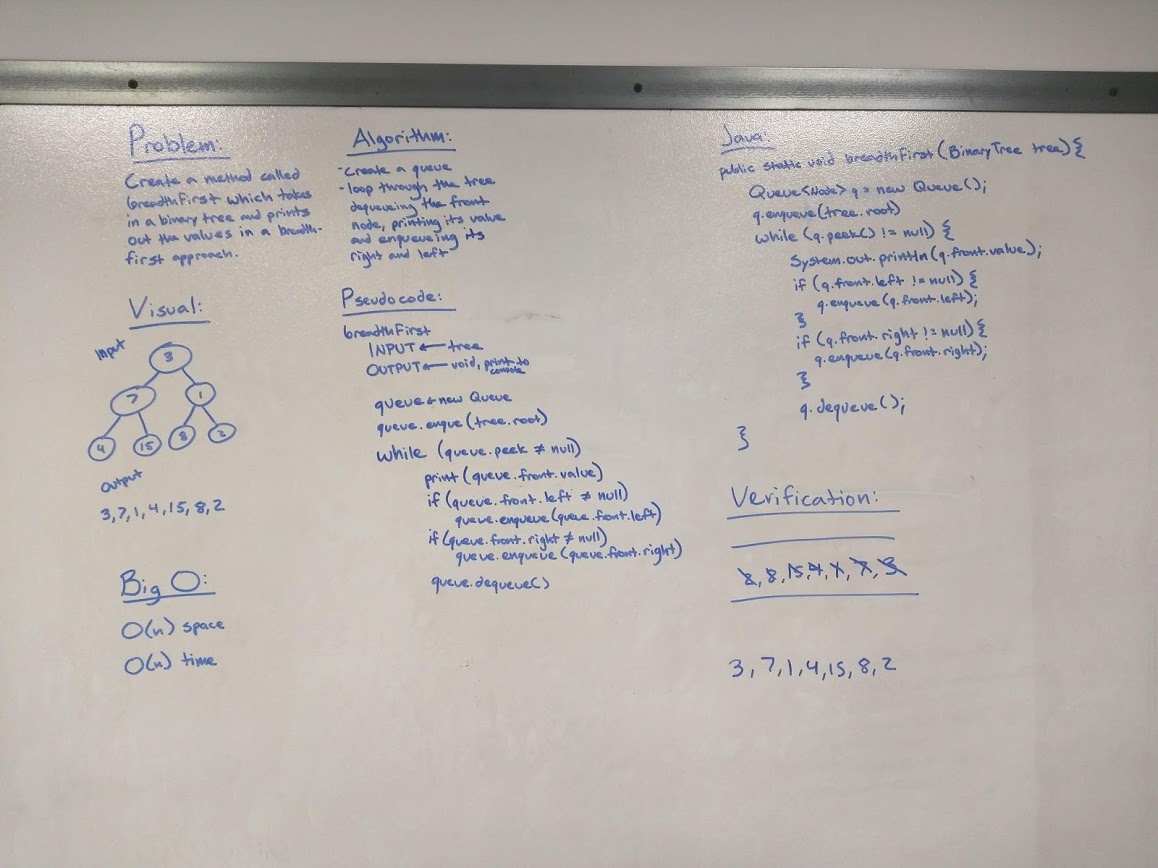 Problem:
Create a method called
breadthFirst which takes
in a binary tree and prints
out the values in a breadth-
first approach.
Visual:
Input
3
7
1
4
15
8
2
Output
3,7,1,4,15,8,2
Big O:
O(n) space
O(n) time
Algorithm:
-create a queue
-loop through the tree
dequeueing the front
node, printing its value
and enqueueing its
right and left
Pseudocode:
breadthFirst
INPUT ← tree
OUTPUT ← void, print to
console
queue ← new Queue
queue.enque(tree.root)
while (queue.peek ≠ null)
print(queue.front.value)
if (queue.front.left ≠ null)
queue.enqueue(queue.front.left)
if (queue.front.right ≠ null)
queue.enqueue(queue.front.right)
queue.dequeue()
Java:
public static void breadthFirst(BinaryTree tree){
Queue<Node> q = new Queue();
q.enqueue(tree.root)
while (q.peek() != null) {
System.out.println(q.front.value);
if (q.front.left != null) {
q.enqueue(q.front.left);
}
if (q.front.right != null) {
q.enqueue(q.front.right);
}
q.dequeue();
}
Verification:
2,8,15,4,1,7,3
3,7,1,4,15,8,2